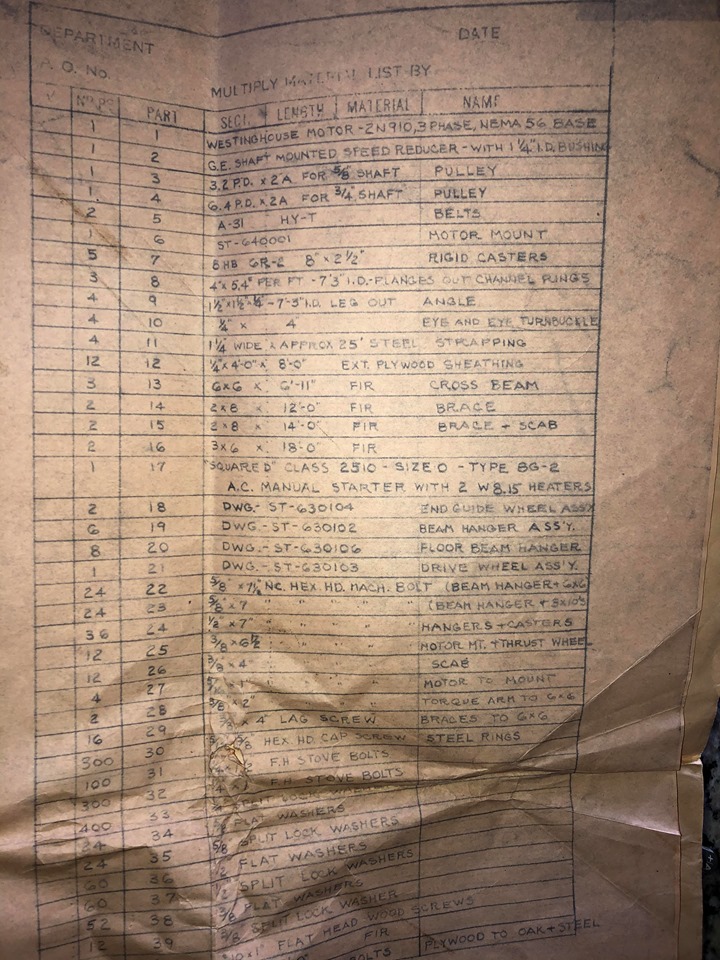 DEPARTMENT DATE
A. O. No.
MULTIPLY MATERIAL LIST BY
No. PS PART SECT. LENGTH MATERIAL NAME
1 1 WESTINGHOUSE MOTOR - 2N910, 3 PHASE, NEMA 56 BASE
1 2 G.E. SHAFT MOUNTED SPEED REDUCER - WITH 1 1/4" I.D. BUSHING
1 3 3.2 P.D. x 2A FOR 5/8 SHAFT PULLEY
1 4 6.4 P.D. x 2A FOR 3/4 SHAFT PULLEY
2 5 A-31 HY-T BELTS
1 6 ST-640001 MOTOR MOUNT
5 7 8HB GR-2 8" x 2 1/2" RIGID CASTERS
3 8 4" x 5.4# PER FT - 7'3" I.D. - FLANGES OUT CHANNEL RINGS
4 9 1 1/2" x 1 1/2" - 1/4" - 7'-3" I.D. LEG OUT ANGLE
4 10 1/4" x 4" EYE AND EYE TURNBUCKLE
4 11 1 1/4 WIDE x APPROX 25' STEEL STRAPPING
12 12 1/4" x 4'-0" x 8'-0" EXT. PLYWOOD SHEATHING
3 13 6x6 x 6'-11" FIR CROSS BEAM
2 14 2x8 x 12'-0" FIR BRACE
2 15 2x8 x 14'-0" FIR BRACE + SCAB
2 16 3x6 x 18'-0" FIR
1 17 "SQUARE D" CLASS 2510 - SIZE 0 - TYPE BG-2
A.C. MANUAL STARTER WITH 2 W 8.15 HEATERS
2 18 DWG.- ST-630104 END GUIDE WHEEL ASS'Y
6 19 DWG.- ST-630102 BEAM HANGER ASS'Y.
8 20 DWG.- ST-630106 FLOOR BEAM HANGER
1 21 DWG.- ST-630103 DRIVE WHEEL ASS'Y.
24 22 5/8" x 7 1/2 NC. HEX. HD. MACH. BOLT (BEAM HANGER + 6x6
24 23 5/8" x 7 " " " " (BEAM HANGER + 3x10'S
36 24 1/2" x 7" " " " " HANGERS + CASTERS
12 25 3/8 x 6 1/2 " " " " MOTOR MT. + THRUST WHEEL
12 26 3/8 x 4" " " " " SCAB
4 27 x 1" " " " MOTOR TO MOUNT
2 28 3/8 x 2" " " " TORQUE ARM TO 6x6
16 29 x 4" LAG SCREW BRACES TO 6x6
300 30 HEX. HD. CAP SCREW STEEL RINGS
100 31 F.H. STOVE BOLTS
300 32 F.H. STOVE BOLTS
400 33 SPLIT LOCK WASHERS
24 34 FLAT WASHERS
24 35 5/8 SPLIT LOCK WASHERS
60 36 FLAT WASHERS
60 37 1/2 SPLIT LOCK WASHERS
52 38 3/8 FLAT WASHERS
12 39 3/8 SPLIT LOCK WASHER
#10 x 1" FLAT HEAD WOOD SCREWS
FIR
BOLTS PLYWOOD TO OAK + STEEL